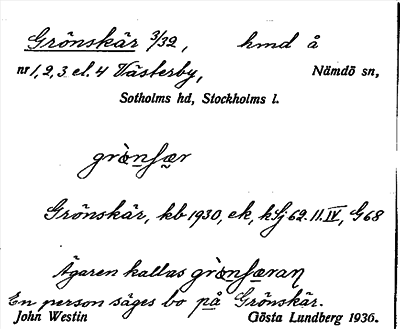 Grönskär 3/32, hmd å
nr 1, 2, 3. el. 4 Västerby, Nämdö sn,
Sotholms hd, Stockholms l.
grò̱nsær
Grönskär, kb 1930, ek, kSj 62. 11. IV, G 68
Ägaren kallas grò̱nsæran
En person säges bo på Grönskär.
John Westin Gösta Lundberg 1936.